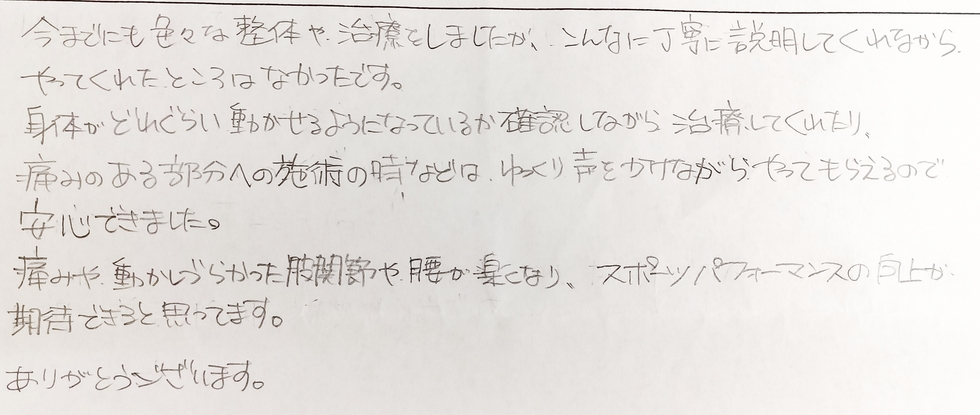 今までにも色々な整体や治療をしましたが、こんなに丁寧に説明してくれながら
やってくれたところはなかったです。
身体がどれぐらい動かせるようになっているか確認しながら治療してくれたり、
痛みのある部分への施術の時などは、ゆっくり声をかけながらやってもらえるので
安心できました。
痛みや、動かしづらかった股関節や、腰が楽になり、スポーツパフォーマンスの向上が
期待できると思ってます。
ありがとうございます。